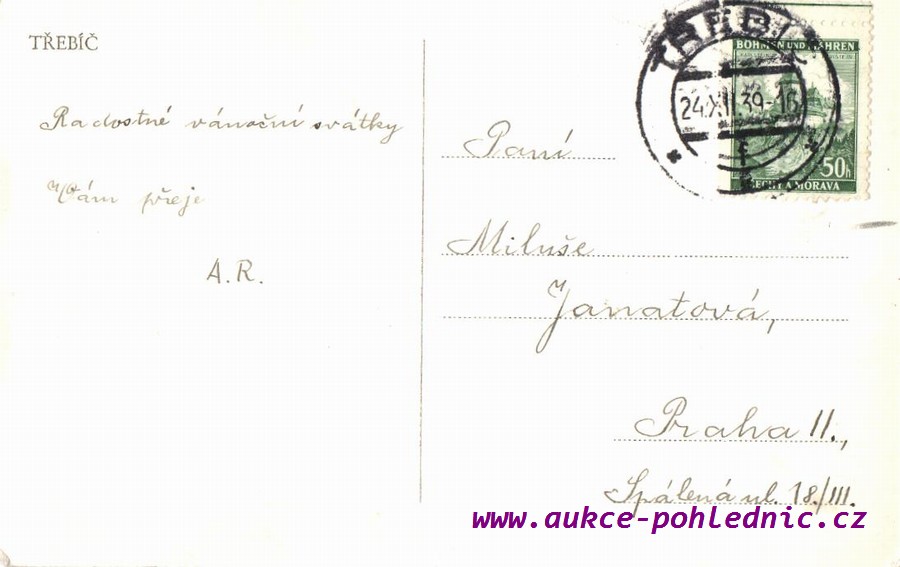 TŘEBÍČ
Radostné vánoční svátky
Vám přeje
A.R.
TŘEBÍČ
24.XII.39-16
f
BÖHMEN UND MÄHREN
50h
ČECHY A MORAVA
Paní
Miluše
Janatová,
Praha II.,
Spálená ul. 18./III.
www.aukce-pohlednic.cz